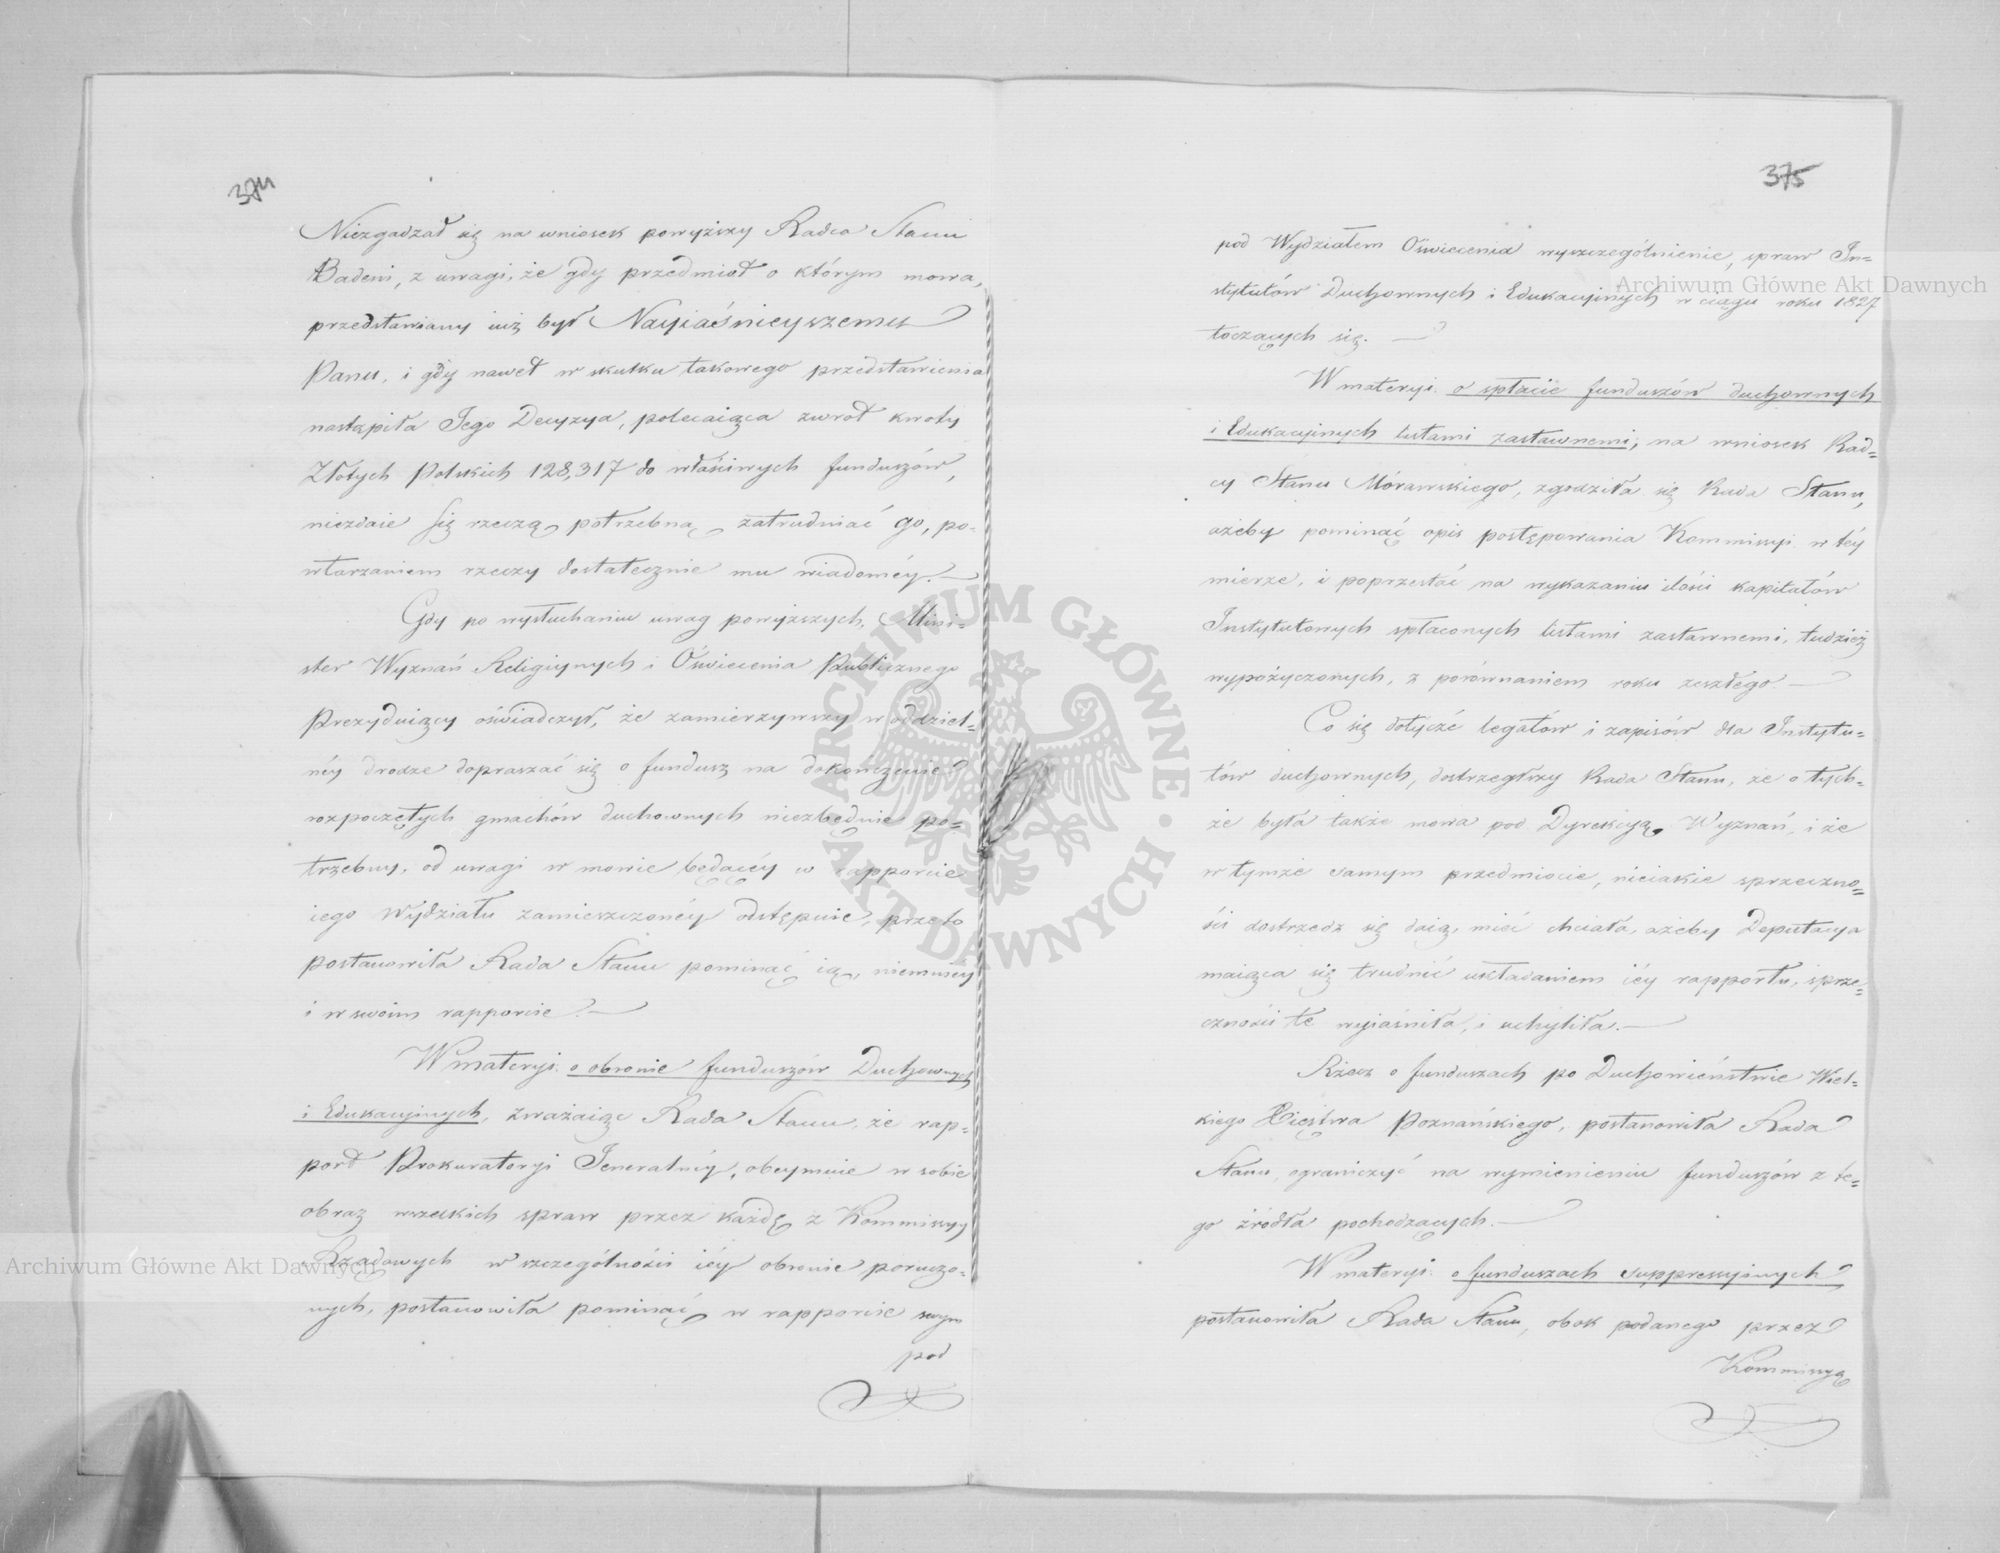 374
Niezgadzał się na wniosek powyższy Radca Stanu
Badeni, z uwagi, że gdy przedmiot o którym mowa,
przedstawiany iuż był Nayiaśnieyszemu
Panu, i gdy nawet w skutku takowego przedstawienia
nastąpiła Jego Decyzya, polecaiąca zwrot kwoty
Złotych Polskich 128,317 do właściwych funduszów,
niezdaie się rzeczą potrzebną zatrudniać go, po-
wtarzaniem rzeczy dostatecznie mu wiadoméy.—
Gdy po wysłuchaniu uwag powyższych, Mini-
ster Wyznań Religiynych i Oświecenia Publicznego
Prezyduiący oświadczył, że zamierzywszy w oddziel-
néy drodze dopraszać się o fundusz na dokończenie
rozpoczętych gmachów duchownych niezbędnie po-
trzebny, od uwagi w mowie będącéy w rapporcie
iego Wydziału zamieszczonéy odstępuie, przeto
postanowiła Rada Stanu pominąć ią, niemniéy
i w swoim rapporcie.—
W materyi o obronie funduszów Duchownych
i Edukacyinych, zważaiąc Rada Stanu, że rap-
port Prokuratoryi Jeneralnéy, obeymuie w sobie
obraz wszelkich spraw przez każdę z Kommissyy
Rządowych w szczególności iéy obronie poruczo-
nych, postanowiła pominąć w rapporcie swym
pod
375
pod Wydziałem Oświecenia wyszczególnienie, spraw In-
stytutów Duchownych i Edukacyinych w ciągu roku 1827
toczących się.—
W materyi o spłacie funduszów duchownych
i Edukacyinych listami zastawnemi, na wniosek Rad-
cy Stanu Morawskiego, zgodziła się Rada Stanu,
ażeby pominąć opis postępowania Kommissyi w téy
mierze, i poprzestać na wykazaniu ilości kapitałów
Instytutowych spłaconych listami zastawnemi, tudzież
wypożyczonych, z porównaniem roku zeszłego.—
Co się dotycze legatów i zapisów dla Instytu-
tów duchownych, dostrzegłszy Rada Stanu, że o tych-
że była także mowa pod Dyrekcyą Wyznań, i że
w tymże samym przedmiocie, nieiakie sprzeczno-
ści dostrzedz się daią, mieć chciała, ażeby Deputacya
maiąca się trudnić układaniem iéy rapportu, sprze-
czności te wyiaśniła, i uchyliła.—
Rzecz o funduszach po Duchowieństwie Wiel-
kiego Xięstwa Poznańskiego, postanowiła Rada
Stanu, ograniczyć na wymienieniu funduszów z te-
go źródła pochodzących.—
W materyi o funduszach suppressyinych
postanowiła Rada Stanu, obok podanego przez
Kommissyą
Archiwum Główne Akt Dawnych
Archiwum Główne Akt Dawnych
ARCHIWUM GŁÓWNE · AKT DAWNYCH ·